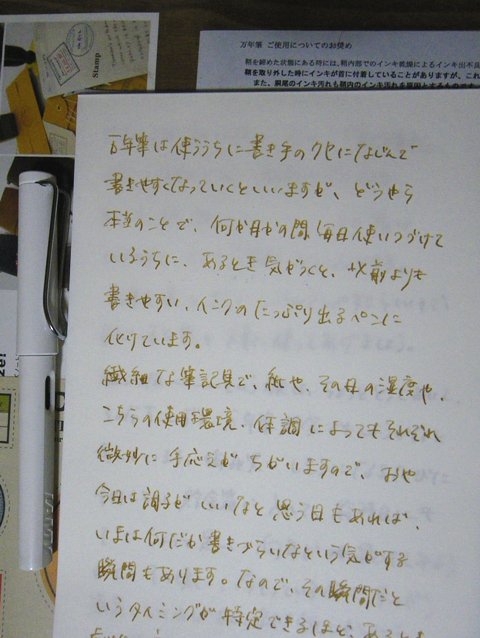 Stamp
万年筆 ご使用についてのお奨め
鞘を締めた状態にある時には、鞘内部でのインキ乾燥によるインキ出不良
鞘を取り外した時にインキが首に付着していることがありますが、これ
また、胴尾のインキ汚れも鞘内のインキ汚れを原因とするものです
万年筆は使ううちに書き手のクセになじんで
書きやすくなっていくといいますが、どうやら
本当のことで、何か月かの間毎日使いつづけて
いるうちに、あるとき気がつくと、以前よりも
書きやすい、インクのたっぷり出るペンに
化けています。
繊細な筆記具で、紙や、その日の湿度や、
こちらの使用環境、体調によってもそれぞれ
微妙に手応えがちがいますので、おや
今日は調子がいいなと思う日もあれば、
いまは何だか書きづらいなという気がする
瞬間もあります。なので、その瞬間だと
いうタイミングが特定できるほど、
LAMY